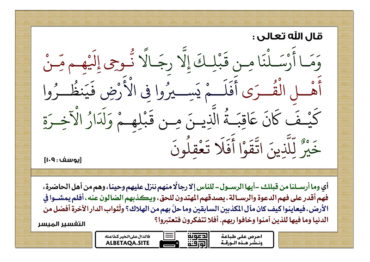 قال الله تعالى :
وَمَا أَرْسَلْنَا مِن قَبْلِكَ إِلَّا رِجَالًا نُّوحِي إِلَيْهِم مِّنْ
أَهْلِ الْقُرَى أَفَلَمْ يَسِيرُوا فِي الْأَرْضِ فَيَنظُرُوا
كَيْفَ كَانَ عَاقِبَةُ الَّذِينَ مِن قَبْلِهِمْ وَلَدَارُ الْآخِرَةِ
خَيْرٌ لِّلَّذِينَ اتَّقَوْا أَفَلَا تَعْقِلُونَ
[يوسف : ١٠٩]
أي وما أرسلنا من قبلك -أيها الرسول- للناس إلا رجالًا منهم ننزل عليهم وحينا، وهم من أهل الحاضرة،
فهم أقدر على فهم الدعوة والرسالة، يصدقهم المهتدون للحق، ويكذبهم الضالون عنه، أفلم يمشوا في
الأرض، فيعاينوا كيف كان مآل المكذبين السابقين وما حلّ بهم من الهلاك؟ ولثواب الدار الآخرة أفضل من
الدنيا وما فيها للذين آمنوا وخافوا ربهم. أفلا تتفكرون فتعتبروا؟
التفسير الميسر
احرص على طباعة
ونشر هذه الورقة
فالدال على الخير كفاعله
ALBETAQA.SITE